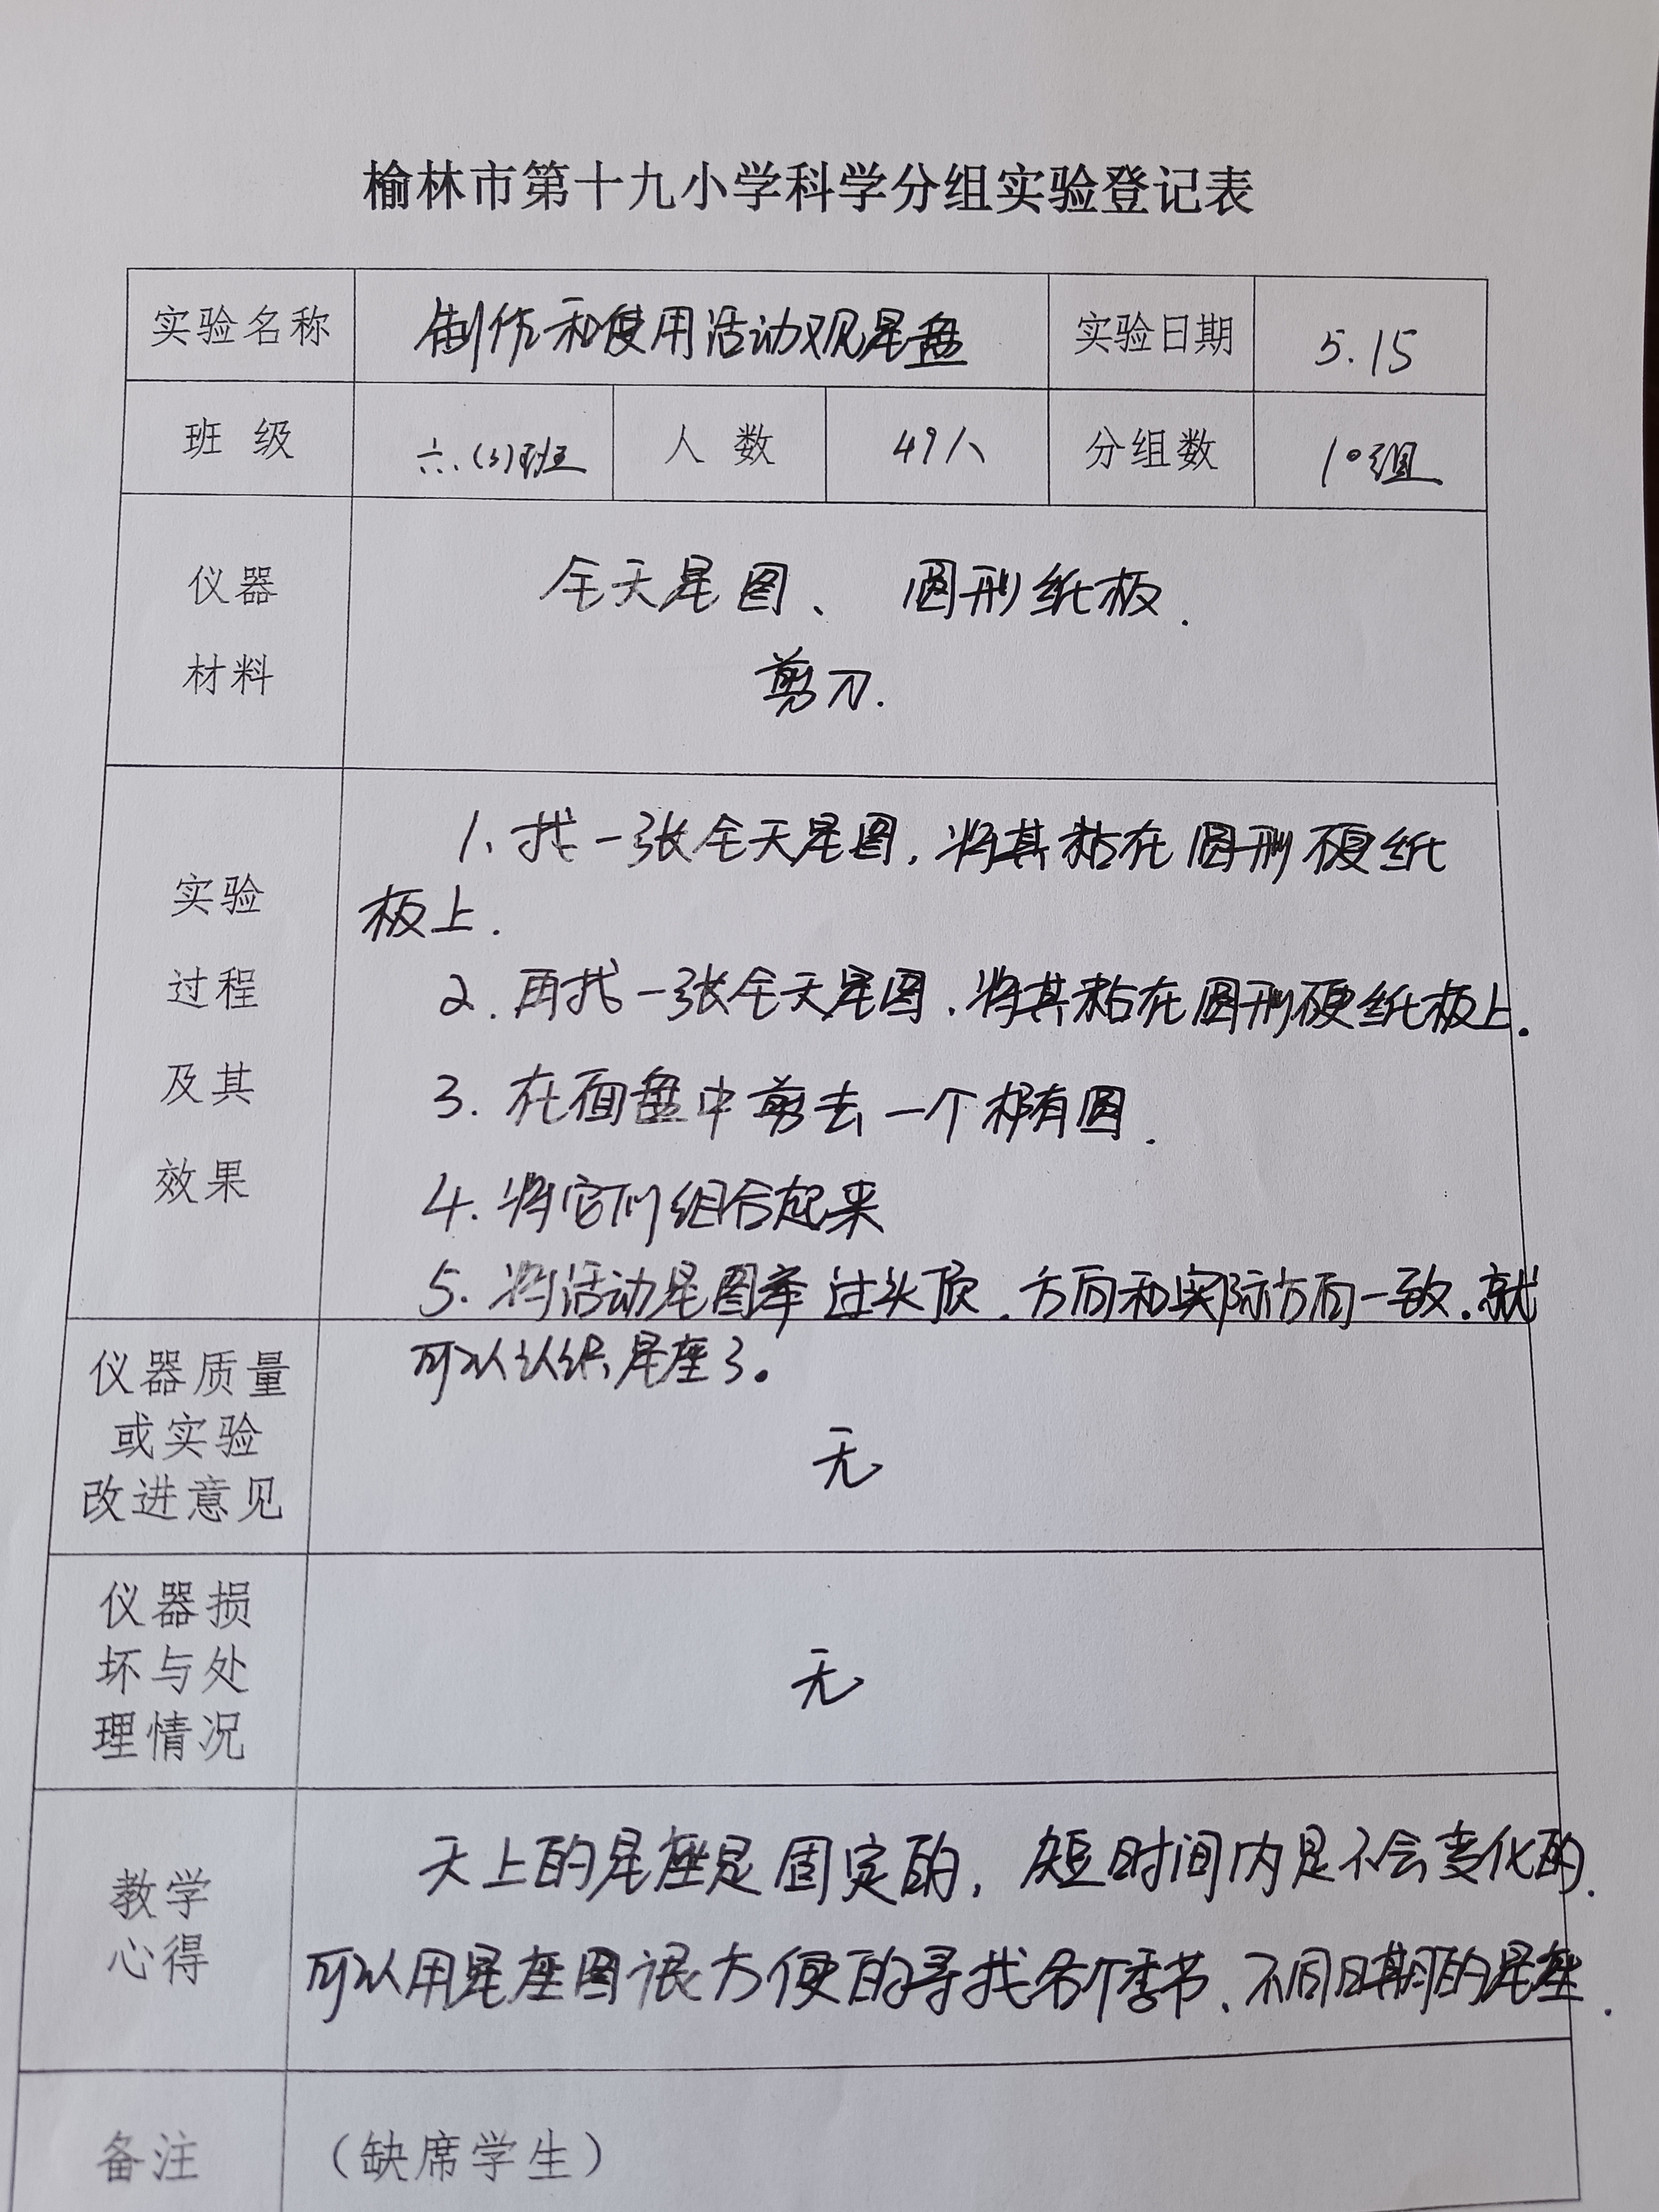 榆林市第十九小学科学分组实验登记表
实验名称 制作和使用活动观星盘 实验日期 5.15
班 级 六.(3)班 人 数 49人 分组数 10组
仪器
材料
全天星图、 圆形纸板.
剪刀.
实验
过程
及其
效果
1、找一张全天星图,将其粘在圆形硬纸
板上.
2. 再找一张全天星图,将其粘在圆形硬纸板上.
3. 在面盘中剪去一个椭圆.
4. 将它们组合起来
5. 将活动星图举过头顶.方向和实际方向一致.就
可以认识星座了。
仪器质量
或实验
改进意见
无
仪器损
坏与处
理情况
无
教学
心得
天上的星座是固定的,短时间内是不会变化的.
可以用星座图很方便的寻找各个季节、不同日期的星座.
备注 (缺席学生)